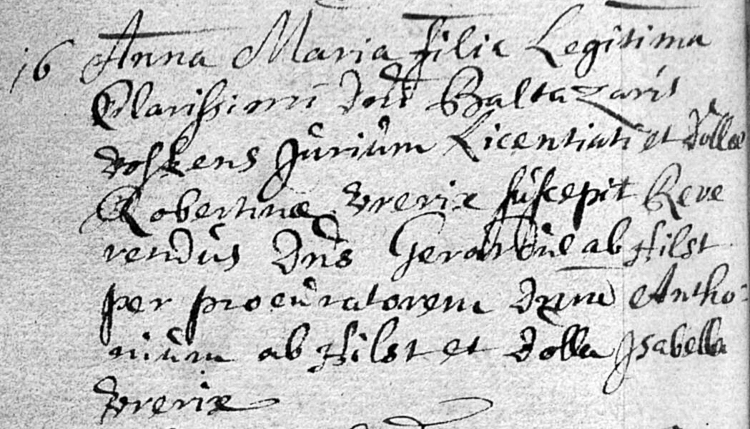 16 Anna Maria filia Legitima
Clarissimi Dni Baltazaris
voskens Jurium Licentiati et Dollae
Robertinae Vrerix suscepit Reve
rendus Dns Gerardus ab Hilst
per procuratorem Dnm Antho-
nium ab Hilst et Dolla Jsabella
Vrerix